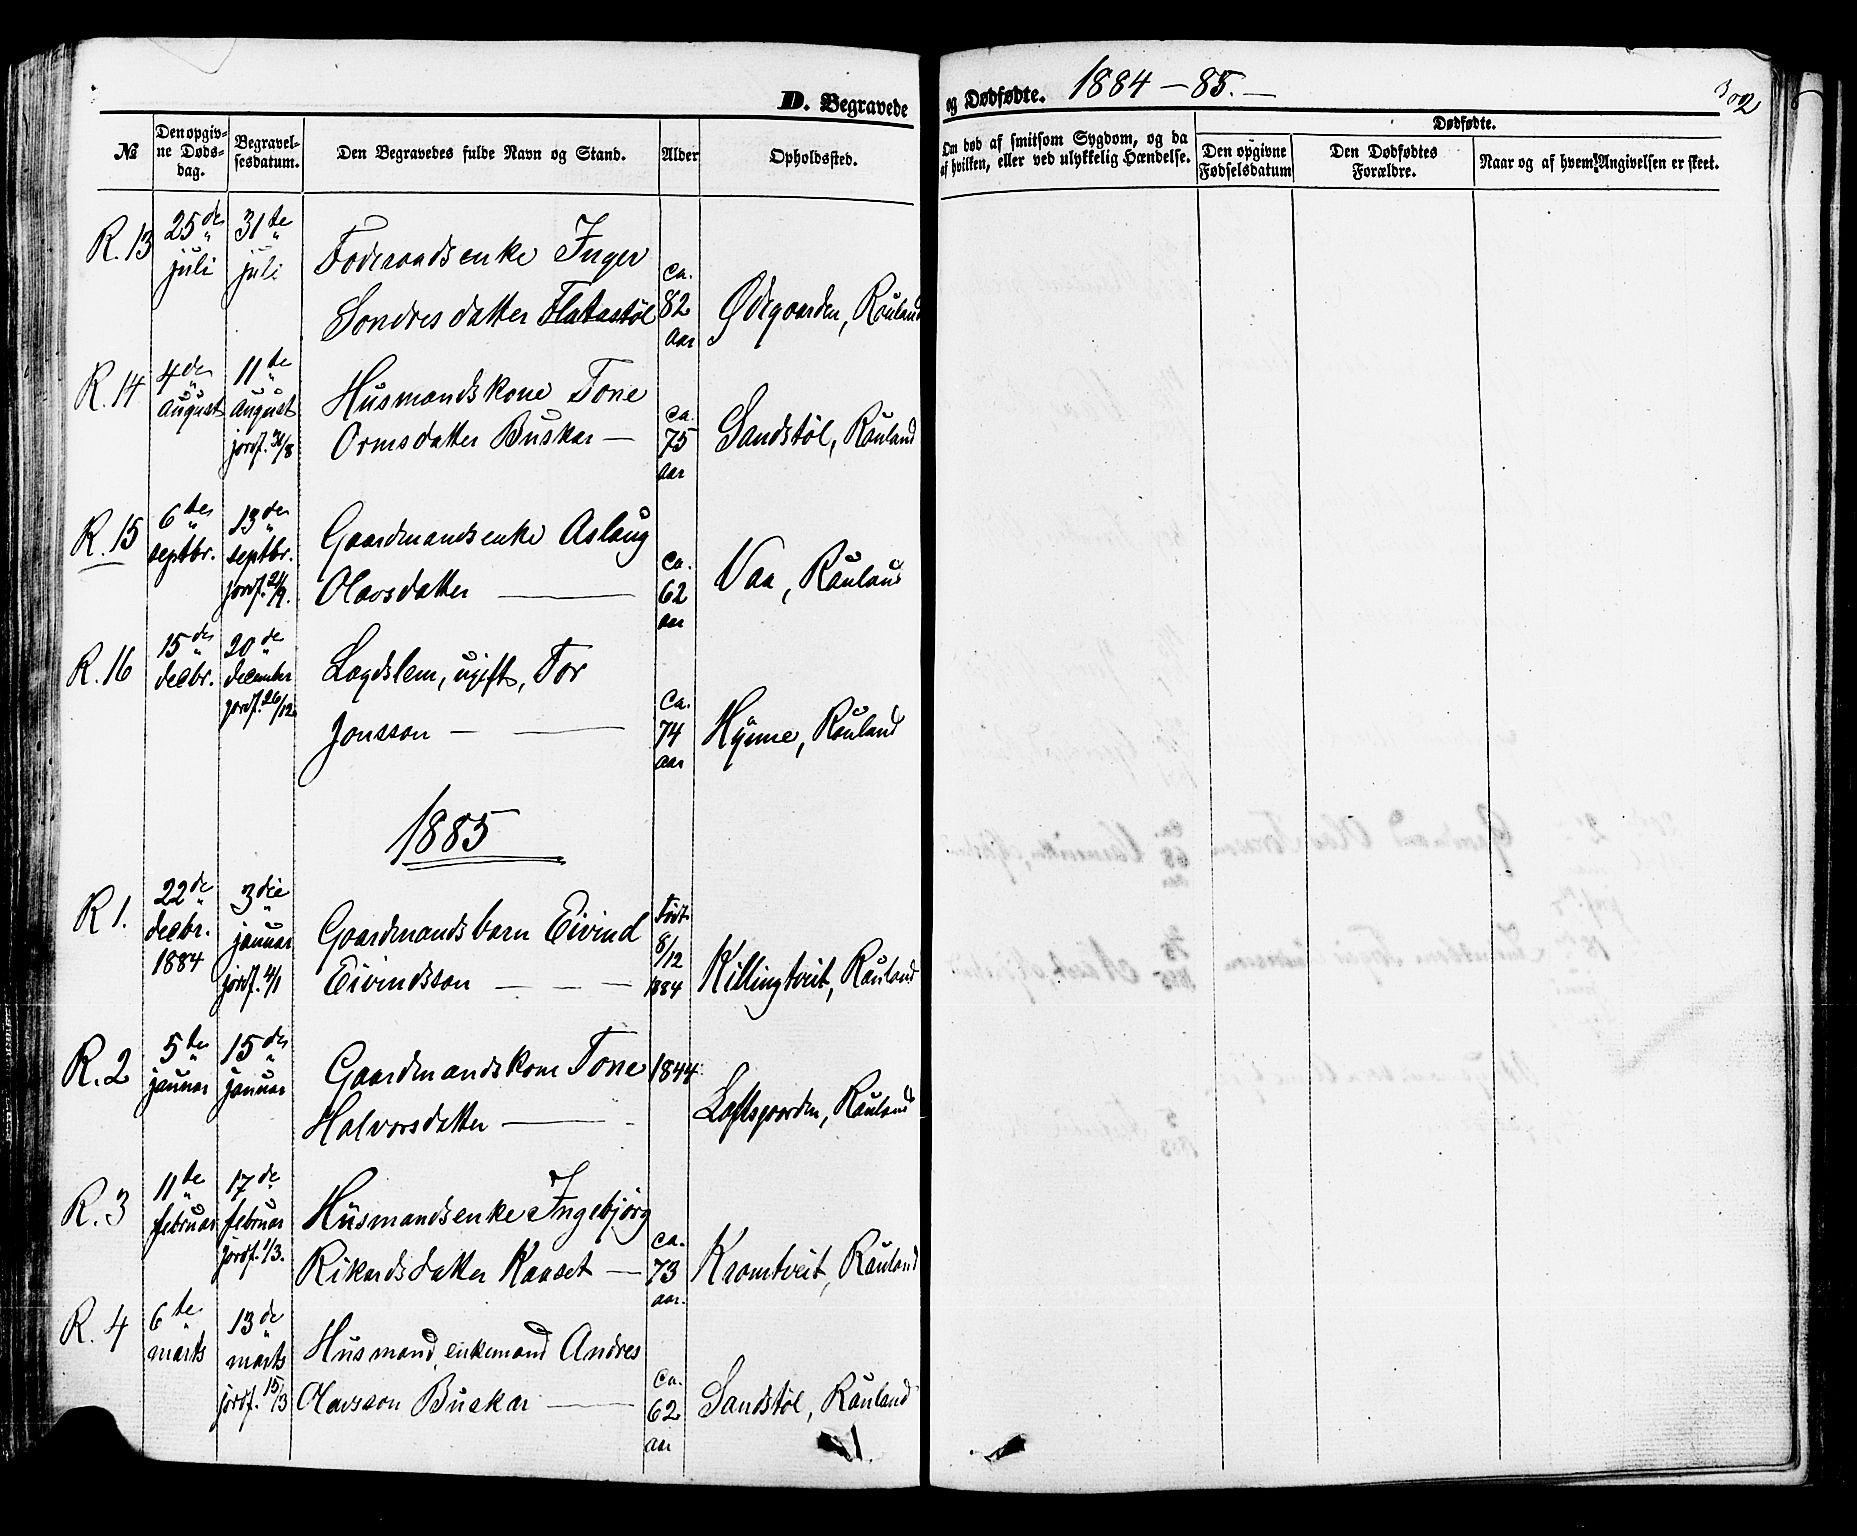 D. Begravede og Dødfødte. 1884-85.
302
№
Den opgivne Dødsdag.
Begravelsesdatum.
Den Begravedes fulde Navn og Stand.
Alder
Opholdssted.
Om død af smitsom Sygdom, og da
af hvilken, eller ved ulykkelig Hændelse.
Dødfødte.
Den opgivne Fødselsdatum
Den Dødfødtes Forældre.
Naar og af hvem Angivelsen er skeet.
R. 13 25de juli 31te juli
Foderaadsenke Inger
Sondresdatter Flatastøl
ca. 82 aar
Ødegaarden, Rauland
R. 14 4de august 11te august jordf. 31/8
Husmandskone Tone
Ormsdatter Buskar —
ca. 75 aar
Sandstøl, Rauland
R. 15 6te septbr. 13de septbr. jordf. 21/9.
Gaardmandsenke Aslaug
Olavsdatter —
ca. 62 aar
Vaa, Rauland
R. 16 15de decbr. 20de december jordf. 26/12
Lægdslem, ugift, Tor
Jonsson — —
ca. 74 aar
Hynne, Rauland
1885
R 1. 22de decbr. 1884 3die januar jordf. 4/1
Gaardmandsbarn Eivind
Eivindsson — — —
Født 8/12 1884
Killingtveit, Rauland
R. 2 5te januar 15de januar
Gaardmandskone Tone
Halvorsdatter —
1844
Loftsgaarden, Rauland
R. 3 11te februar 17de februar jordf. 1/3.
Husmandsenke Ingebjörg
Rikardsdatter Kaaset —
ca. 73 aar.
Kromtveit, Rauland
R. 4 6te marts 13de marts jordf. 15/3
Husmand, enkemand Andres
Olavsson Buskar —
ca. 62 aar
Sandstøl, Rauland